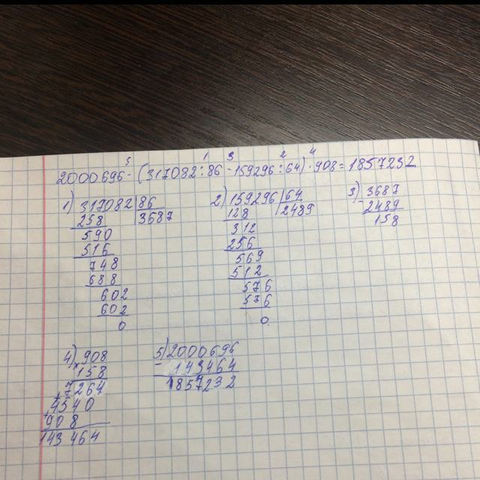 5 1 3 2 4
2000696-(317082:86-159296:64)·908=1857232
1) 317082 86 2) 159296 64 3) 3687
258 3687 128 2489 -2489
590 312 158
516 256
748 569
688 512
602 576
602 576
0 0
4) 908 5) 2000696
×158 - 143464
7264 1857232
+4540
+908
143464